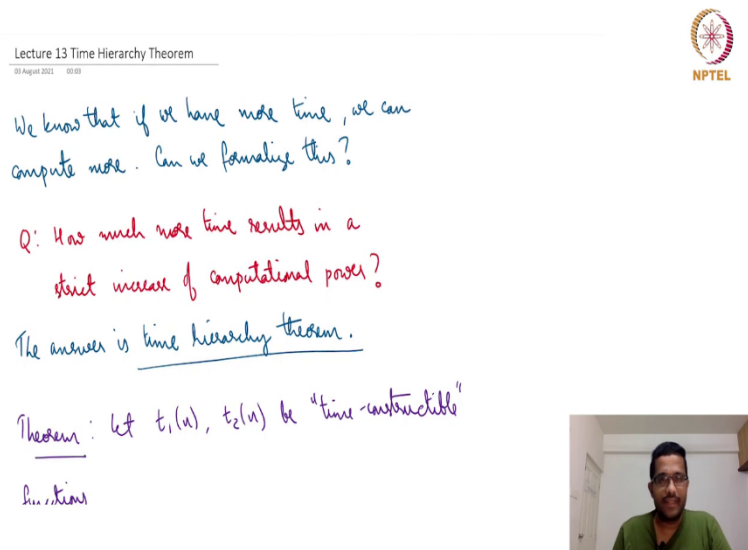 Lecture 13 Time Hierarchy Theorem
03 August 2021 00:03
NPTEL
We know that if we have more time, we can
compute more. Can we formalize this?
Q: How much more time results in a
strict increase of computational power?
The answer is time hierarchy theorem.
Theorem: Let t₁(n), t₂(n) be "time-constructible"
functions